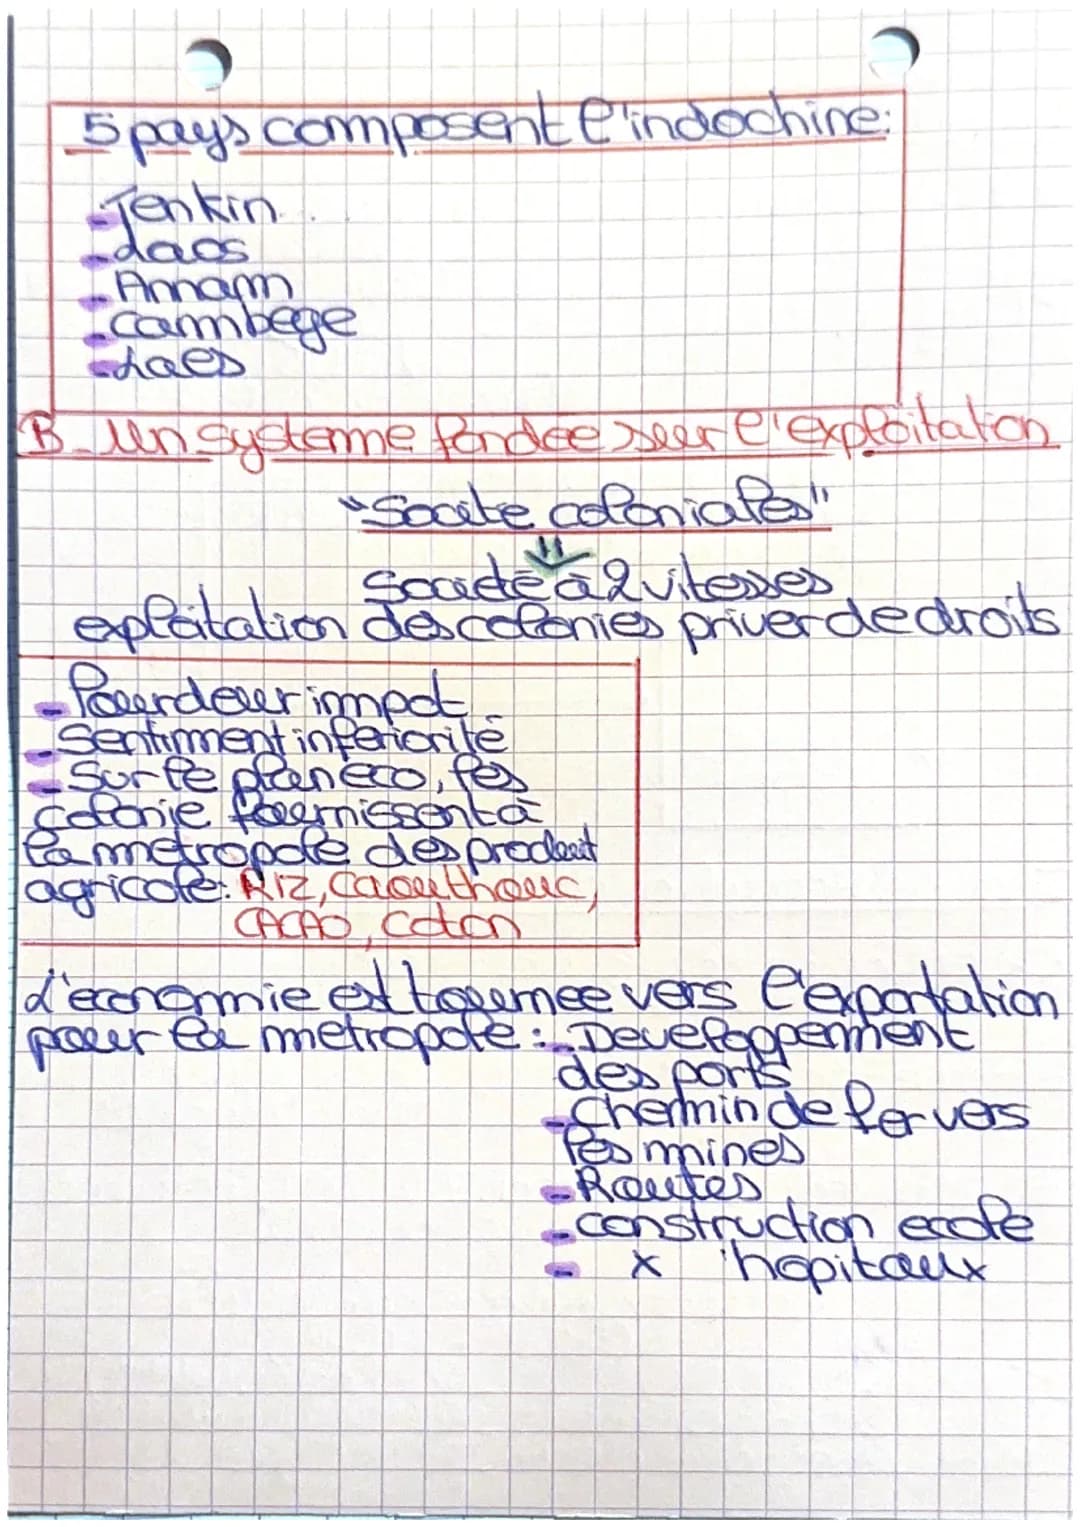 5 pays composent l'indochine:
- Tonkin
- Laos
- Annam
- Camboge
- Laos
B- Un systeme fondee sur l'exploitation
"Société coloniales"
Société à 2 vitesses
exploitation des colonies priver de droits
- lourdeur impot
- Sentiment inferiorité
- Sur le plan eco, les
colonie fournissent à
la metropole des produit
agricole: RIZ, Caouthouc,
CACAO, Coton
L'economie est tournee vers l'exportation
pour la metropole: - Developpement
des ports
- Chemin de fer vers
les mines
- Routes
- construction ecole
- x hopitaux